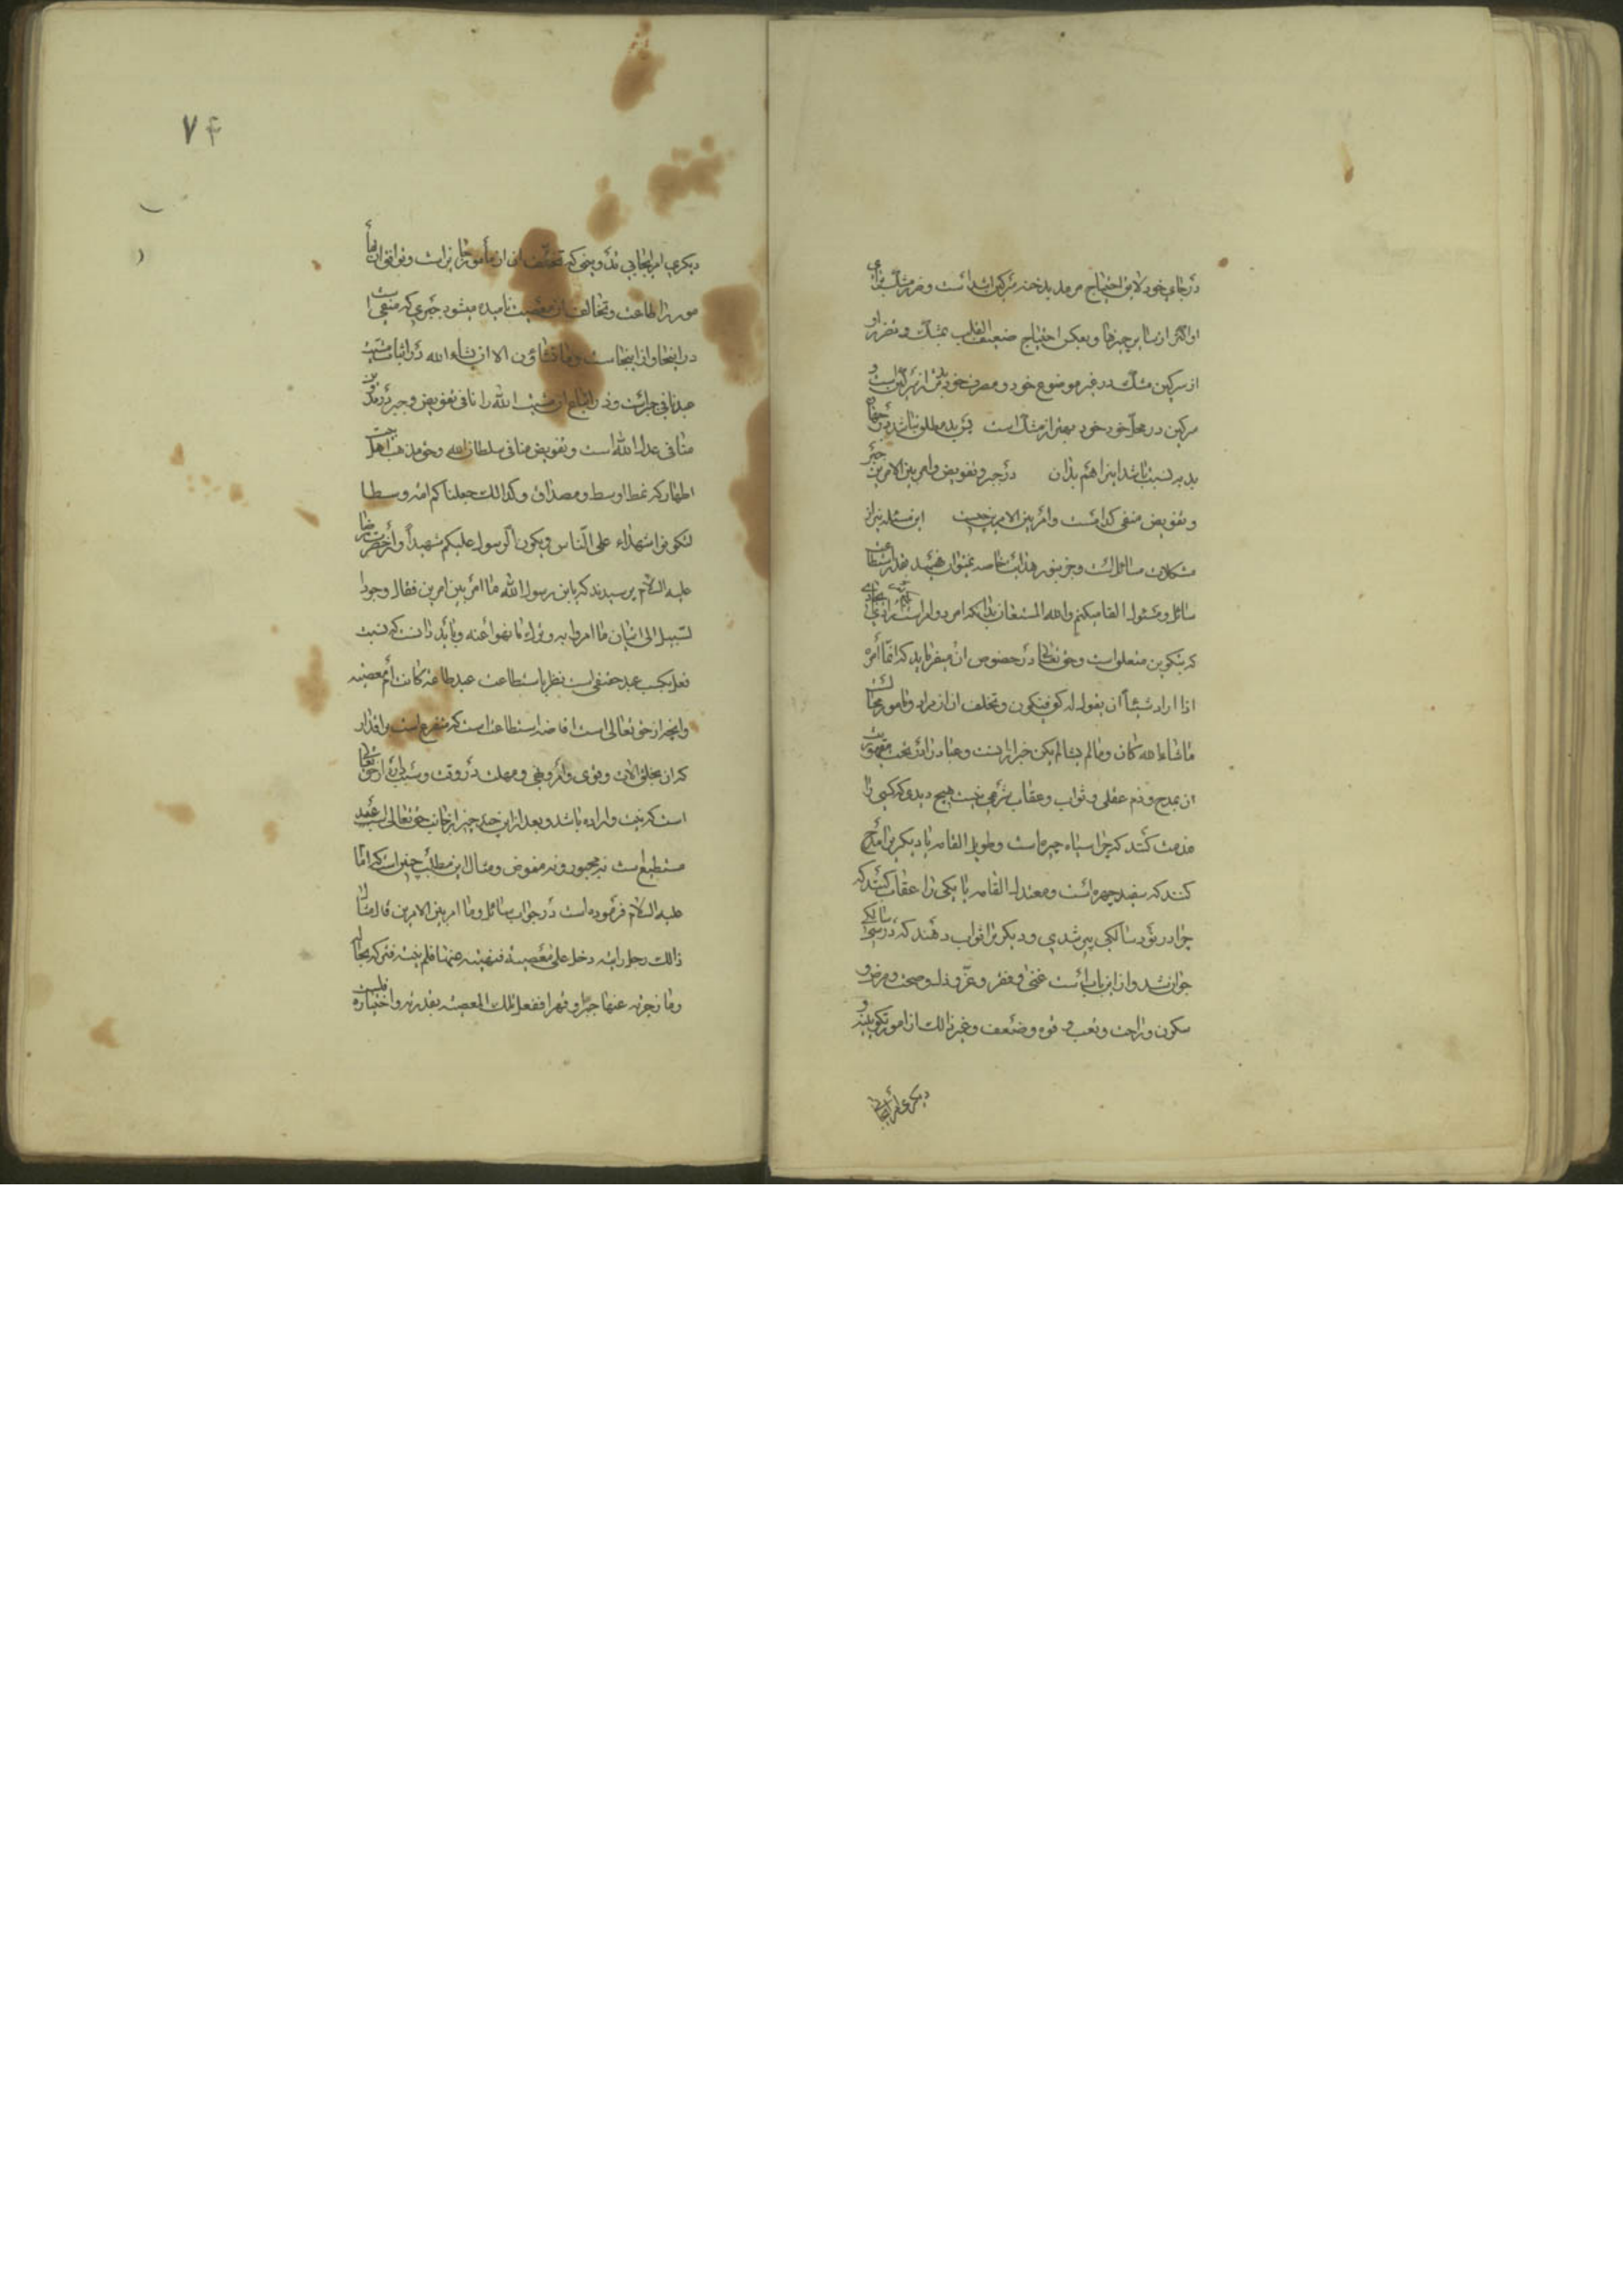 در جای خود لابد احتیاج مرمد بدخنه سرکین اشد است و ضرر مشک برای
او اکثر از سایر چیزها و بعکس احتیاج ضعیف القلب بمشک و تضرر او
از سرکین مشک در غیر موضوع خود و مصرف خود بدتر از سرکین است و
سرکین در محل خود خود بهتر از مشک است
بد به نسبت باشد اینرا هم بدان در جبر و تفویض و امر بین الامرین جبر
و تفویض منفی کدامست و امر بین الامرین چیست این مسئله نیز از
مشکلات مسائل است و جز بنور هدایت خاصه نمیتوان فهمید بقدر استطاعت
سائل و مسئول القا میکنم والله المستعان بدانکه امر دو امر است
که بتکوین متعلق است و حق تعالی در خصوص ان میفرماید که انما امره
اذا اراد شیئاً ان یقول له کن فیکون و تخلف از ان مراد و مامور محال است
ماشاء الله کان و مالم یشا لم یکن خبر از اینست و عباد در ان تحت مقهوریت
ان بمدح و ذم عقلی و ثواب و عقاب شرعی نیست هیچ دیدی که کسی را
مذمت کنند که چرا سیاه چرده است و طویل القامه یا دیکریرا مدح
کنند که سفید چهره است و معتدل القامه یا یکی را عقاب کنند که
چرا در نود سالکی پیر شدی و دیکریرا ثواب دهند که در سی سالکی
جوان شد و از این باب است غنی و فقر و عز و ذل و صحت و مرض و
سکون و راحت و تعب و قوه و ضعف و غیر ذالک از امور تکوینیه و
دیکری امر ایجابی
۷۴
دیکری امر ایجابی
مور را طاعت و تخالف ان معصیت نامیده میشود جبری که منفی است
در اینجا و ان اینجاست وما تشاؤن الا ان یشاء الله در اثبات مشیت
عبد نافی جبر است و در اتباع ان مشیت الله را نافی تفویض و جبر
منافی عدل الله است و تفویض منافی سلطان الله و حق مذهب اهل بیت
اطهار که نمط اوسط و مصداق وکذالک جعلناکم امة وسطا
لتکونوا شهداء علی الناس ویکون الرسول علیکم شهیداً و از حضرت رضا
علیه السلام پرسیدند که یابن رسول الله ما امر بین امرین فقال وجود
السبیل الی اتیان ما امروا به و ترک ما نهوا عنه و باید دانست که نسبت
فعل بکسب عبد حقیقی است نظر باستطاعت عبد طاعة کانت أم معصیه
وانچه از حق تعالی است افاضه استطاعت است که متفرع است باقدار
که ان بخلق الات و قوی و امر و نهی و مهلت در وقت
است که نیت و اراده باشد و بعد از این چند چیز از جانب حق تعالی است عبد
مستطیع است نه مجبور و نه مفوض و مثال این مطلب چنین است که امام
علیه السلام فرموده است در جواب سائل وما امر بین الامرین قال مثال
ذالک رجل رایته دخل علی معصیة فنهیته عنها فلم ینته فترکته بحاله
وما زجرته عنها جبراً و قهراً ففعل تلک المعصیة بقدرته و اختیاره فلیست